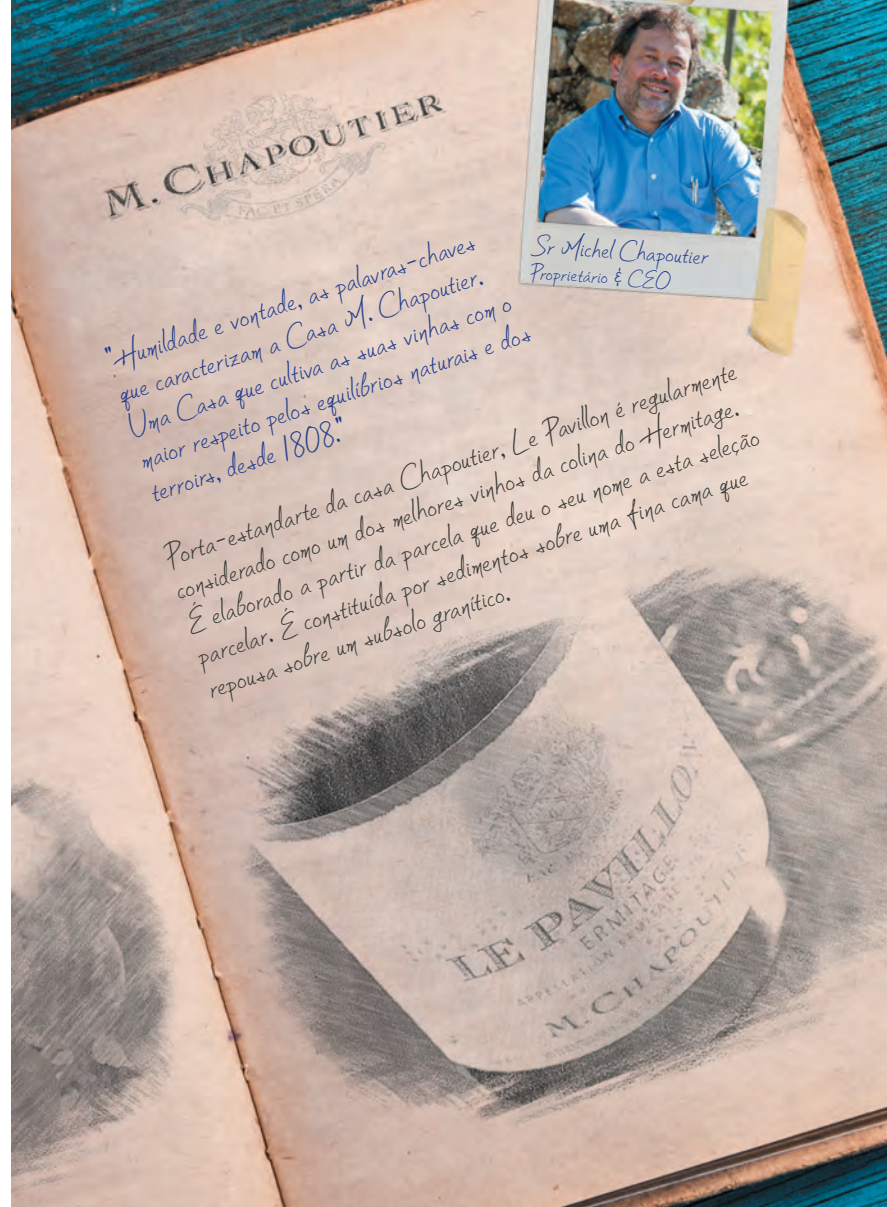 M. CHAPOUTIER
FAC ET SPERA
Sr Michel Chapoutier
Proprietário & CEO
"Humildade e vontade, as palavras-chaves
que caracterizam a Casa M. Chapoutier.
Uma Casa que cultiva as suas vinhas com o
maior respeito pelos equilíbrios naturais e dos
terroirs, desde 1808."
Porta-estandarte da casa Chapoutier, Le Pavillon é regularmente
considerado como um dos melhores vinhos da colina do Hermitage.
É elaborado a partir da parcela que deu o seu nome a esta seleção
parcelar. É constituída por sedimentos sobre uma fina cama que
repousa sobre um subsolo granítico.
LE PAVILLON
ERMITAGE
APPELLATION ERMITAGE
M. CHAPOUTIER